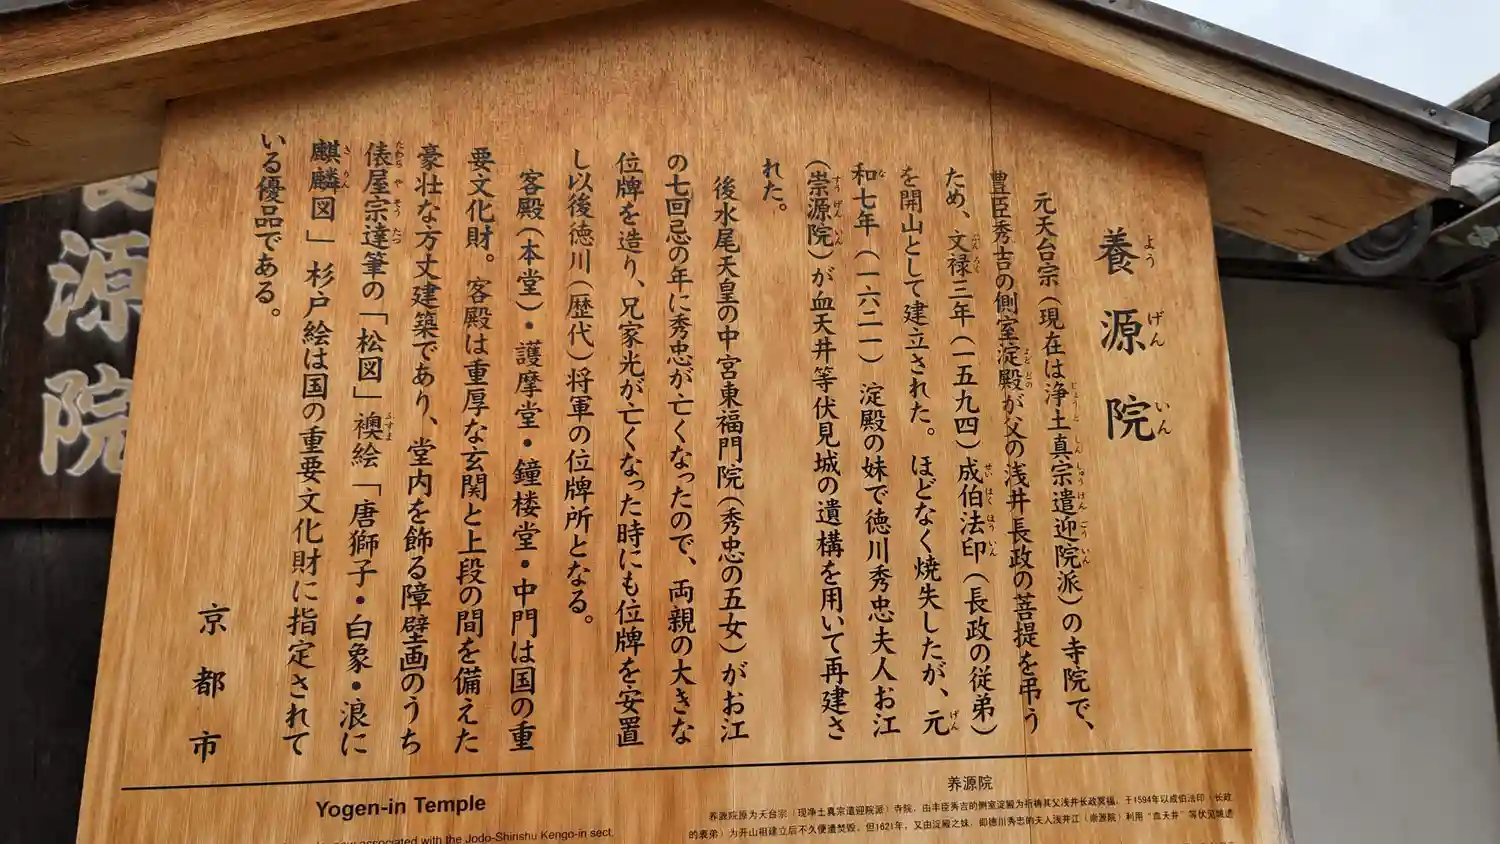 養源院
よう げん いん
元天台宗（現在は浄土真宗遣迎院派）の寺院で、
じょうど しん しゅう けん ごう いん
豊臣秀吉の側室淀殿が父の浅井長政の菩提を弔う
よど どの
ため、文禄三年（一五九四）成伯法印（長政の従弟）
ぶん ろく せい はく ほう いん
を開山として建立された。ほどなく焼失したが、元
げん
和七年（一六二一）淀殿の妹で徳川秀忠夫人お江
な
（崇源院）が血天井等伏見城の遺構を用いて再建さ
すう げん いん
れた。
後水尾天皇の中宮東福門院（秀忠の五女）がお江
の七回忌の年に秀忠が亡くなったので、両親の大きな
位牌を造り、兄家光が亡くなった時にも位牌を安置
し以後徳川（歴代）将軍の位牌所となる。
客殿（本堂）・護摩堂・鐘楼堂・中門は国の重
要文化財。客殿は重厚な玄関と上段の間を備えた
豪壮な方丈建築であり、堂内を飾る障壁画のうち
俵屋宗達筆の「松図」襖絵「唐獅子・白象・浪に
たわら や そう たつ ふすま
麒麟図」杉戸絵は国の重要文化財に指定されて
き りん
いる優品である。
京都市
源院
Yogen-in Temple
now associated with the Jodo-Shinshu Kengo-in sect.
养源院
养源院原为天台宗（现净土真宗遣迎院派）寺院，由丰臣秀吉的侧室淀殿为祈祷其父浅井长政冥福，于1594年以成伯法印（长政
的表弟）为开山祖建立后不久便遭焚毁，但1621年，又由淀殿之妹，即德川秀忠的夫人浅井江（崇源院）利用“血天井”等伏见城遗